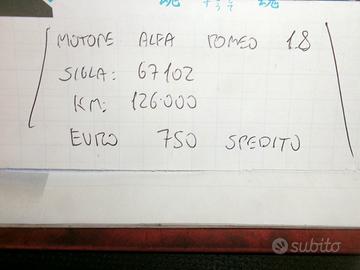 MOTORE ALFA ROMEO 1.8
SIGLA: 67102
KM: 126.000
EURO 750 SPEDITO
subito